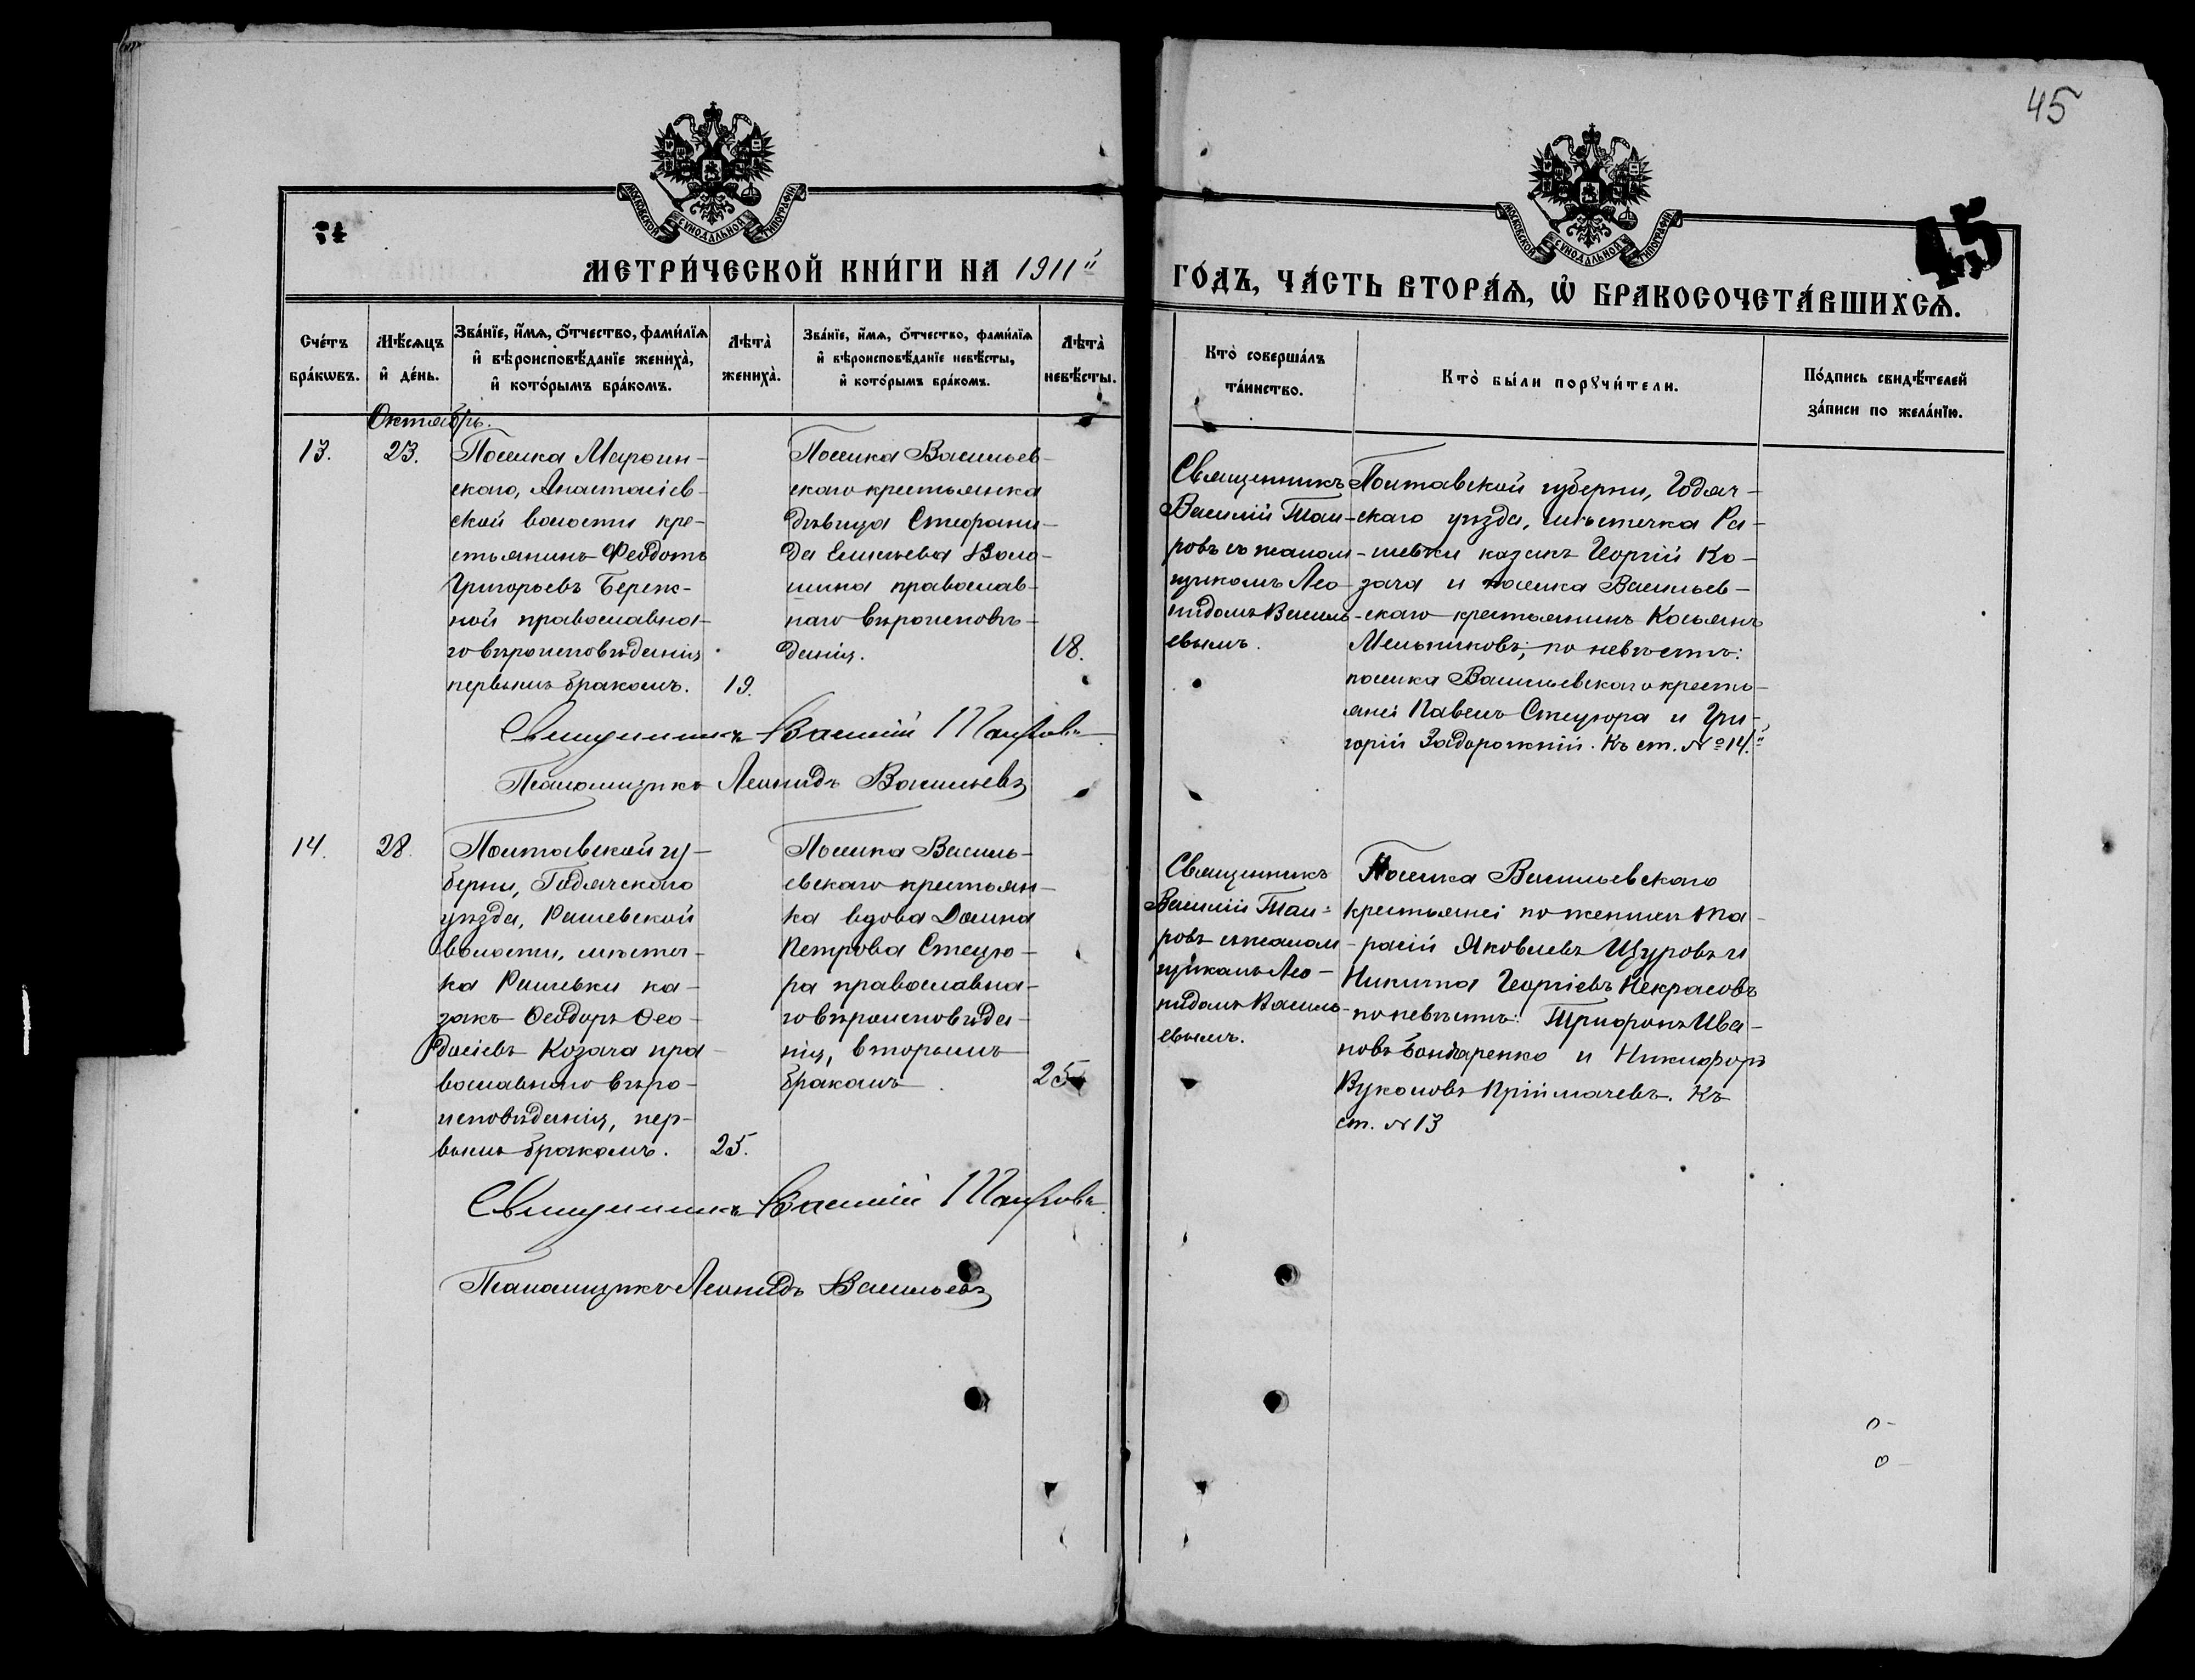 45
МОСКОВСКОЙ СѴНОДАЛЬНОЙ ТИПОГРАФІИ
МОСКОВСКОЙ СѴНОДАЛЬНОЙ ТИПОГРАФІИ
45
МЕТРИ́ЧЕСКОЙ КНИ́ГИ НА 1911й
ГО́ДЪ, ЧА́СТЬ ВТОРА́Ѧ, Ѡ҆ БРАКОСОЧЕТА́ВШИХСѦ.
Сче́тъ бра́кѡвъ.
Мѣ́сѧцъ и҆ де́нь.
Зва́нїе, и҆́мѧ, ѻ҆́тчество, фами́лїѧ и҆ вѣроисповѣ́данїе жениха̀, и҆ кото́рымъ бра́комъ.
Лѣта̀ жениха̀.
Зва́нїе, и҆́мѧ, ѻ҆́тчество, фами́лїѧ и҆ вѣроисповѣ́данїе невѣ́сты, и҆ кото́рымъ бра́комъ.
Лѣта̀ невѣ́сты.
Кто̀ соверша́лъ та́инство.
Кто̀ бы́ли порꙋчи́тели.
По́дпись свидѣ́телей за́писи по жела́нїю.
Октябрь.
13.
23.
Поселка Мароин-
скаго, Анастасіев-
ской волости кре-
стьянинъ Феодотъ
Григорьевъ Береж-
ной православна-
го вѣроисповѣданія
первымъ бракомъ.
19.
Поселка Васильев-
скаго крестьянка
дѣвица Стефани-
да Емильева Воло-
шина православ-
наго вѣроисповѣ-
данія.
18.
Священникъ
Василій Таи-
ровъ съ псалом-
щикомъ Лео-
нидомъ Василь-
евымъ.
Полтавской губерніи, Годяч-
скаго уѣзда, мѣстечка Ра-
шевки казакъ Георгій Ко-
зача и поселка Васильев-
скаго крестьянинъ Косьянъ
Мельниковъ; по невѣстѣ:
поселка Васильевскаго кресть-
яне Павелъ Стецюра и Гри-
горій Задорожній. Къ ст. № 14.й
Священникъ Василій Таировъ
Псаломщикъ Леонидъ Васильевъ
14.
28.
Полтавской гу-
берніи, Годячскаго
уѣзда, Рашевской
волости, мѣстеч-
ка Рашевки ка-
закъ Ѳеодоръ Ѳео-
досіевъ Козача пра-
вославнаго вѣро-
исповѣданія, пер-
вымъ бракомъ.
25.
Поселка Василь-
евскаго крестьян-
ка вдова Домна
Петрова Стецю-
ра православна-
го вѣроисповѣда-
нія, вторымъ
бракомъ.
25
Священникъ
Василій Таи-
ровъ съ псалом-
щикомъ Лео-
нидомъ Василь-
евымъ.
Поселка Васильевскаго
крестьянеі по женихѣ Та-
расій Яковлевъ Щуровъ и
Никита Георгіевъ Некрасовъ
по невѣстѣ: Трифонъ Ива-
новъ Бондаренко и Никифоръ
Вуколовъ Прійма­чевъ. Къ
ст. № 13
Священникъ Василій Таировъ
Псаломщикъ Леонидъ Васильевъ